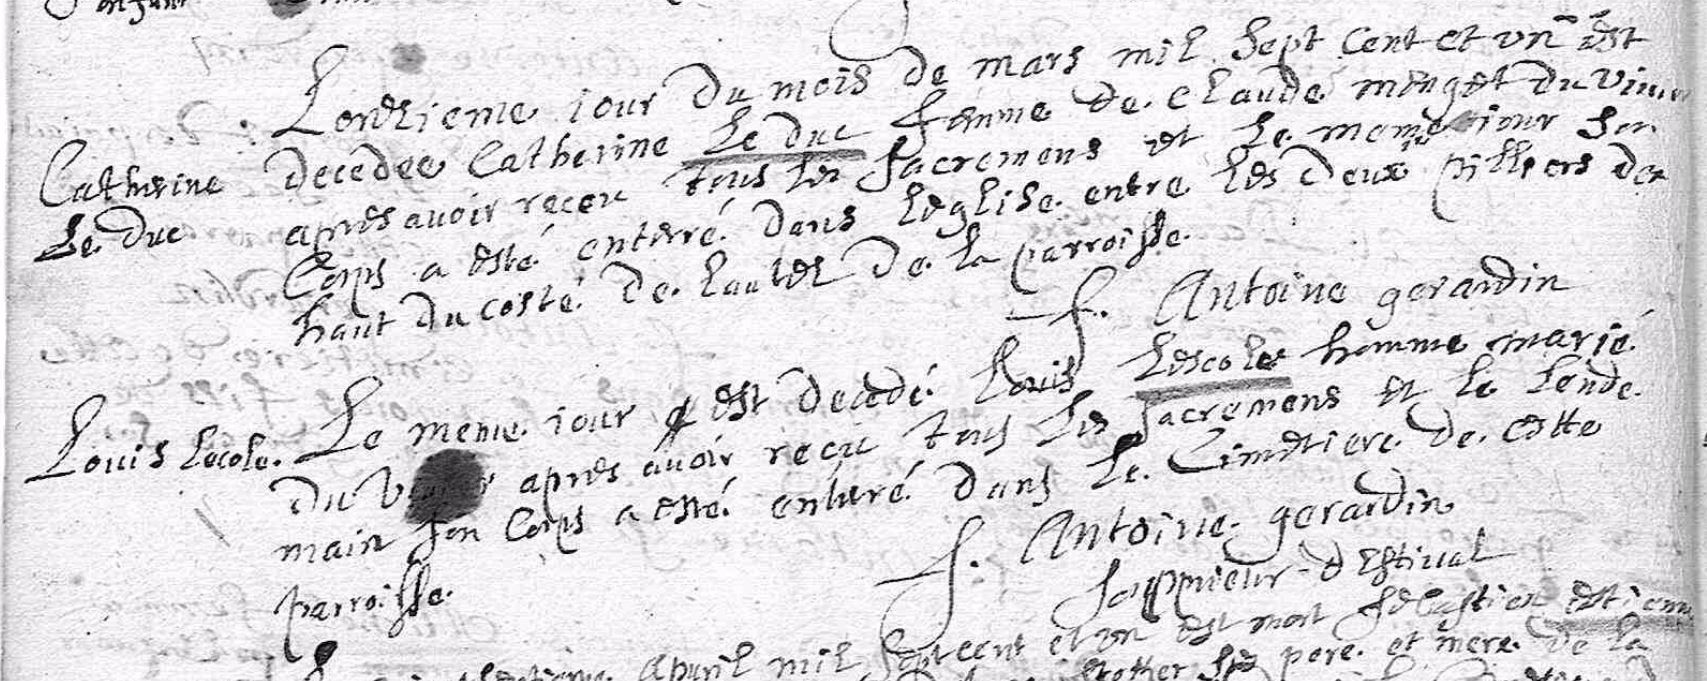 enfant
Lonzieme iour du mois de mars mil sept cent et un est
decedee Catherine le duc femme de Claude menget du vivier
apres avoir receu tous les sacremens et le meme iour son
Corps a esté enterré dans leglise entre les deux pilliers den
haut du costé de lautel de la parroisse.
f. Antoine gerardin
Catherine
le duc
Le meme iour est decedé Louis Lescole homme marié
du apres avoir recu tous les sacremens et le lende
main son corps a esté enterré dans le Cimetiere de cette
parroisse.
f. Antoine gerardin
souprieur d'Estival
Louis lecole.
apvril mil sept cent et un est mort sebastien estienne
pere et mere de la